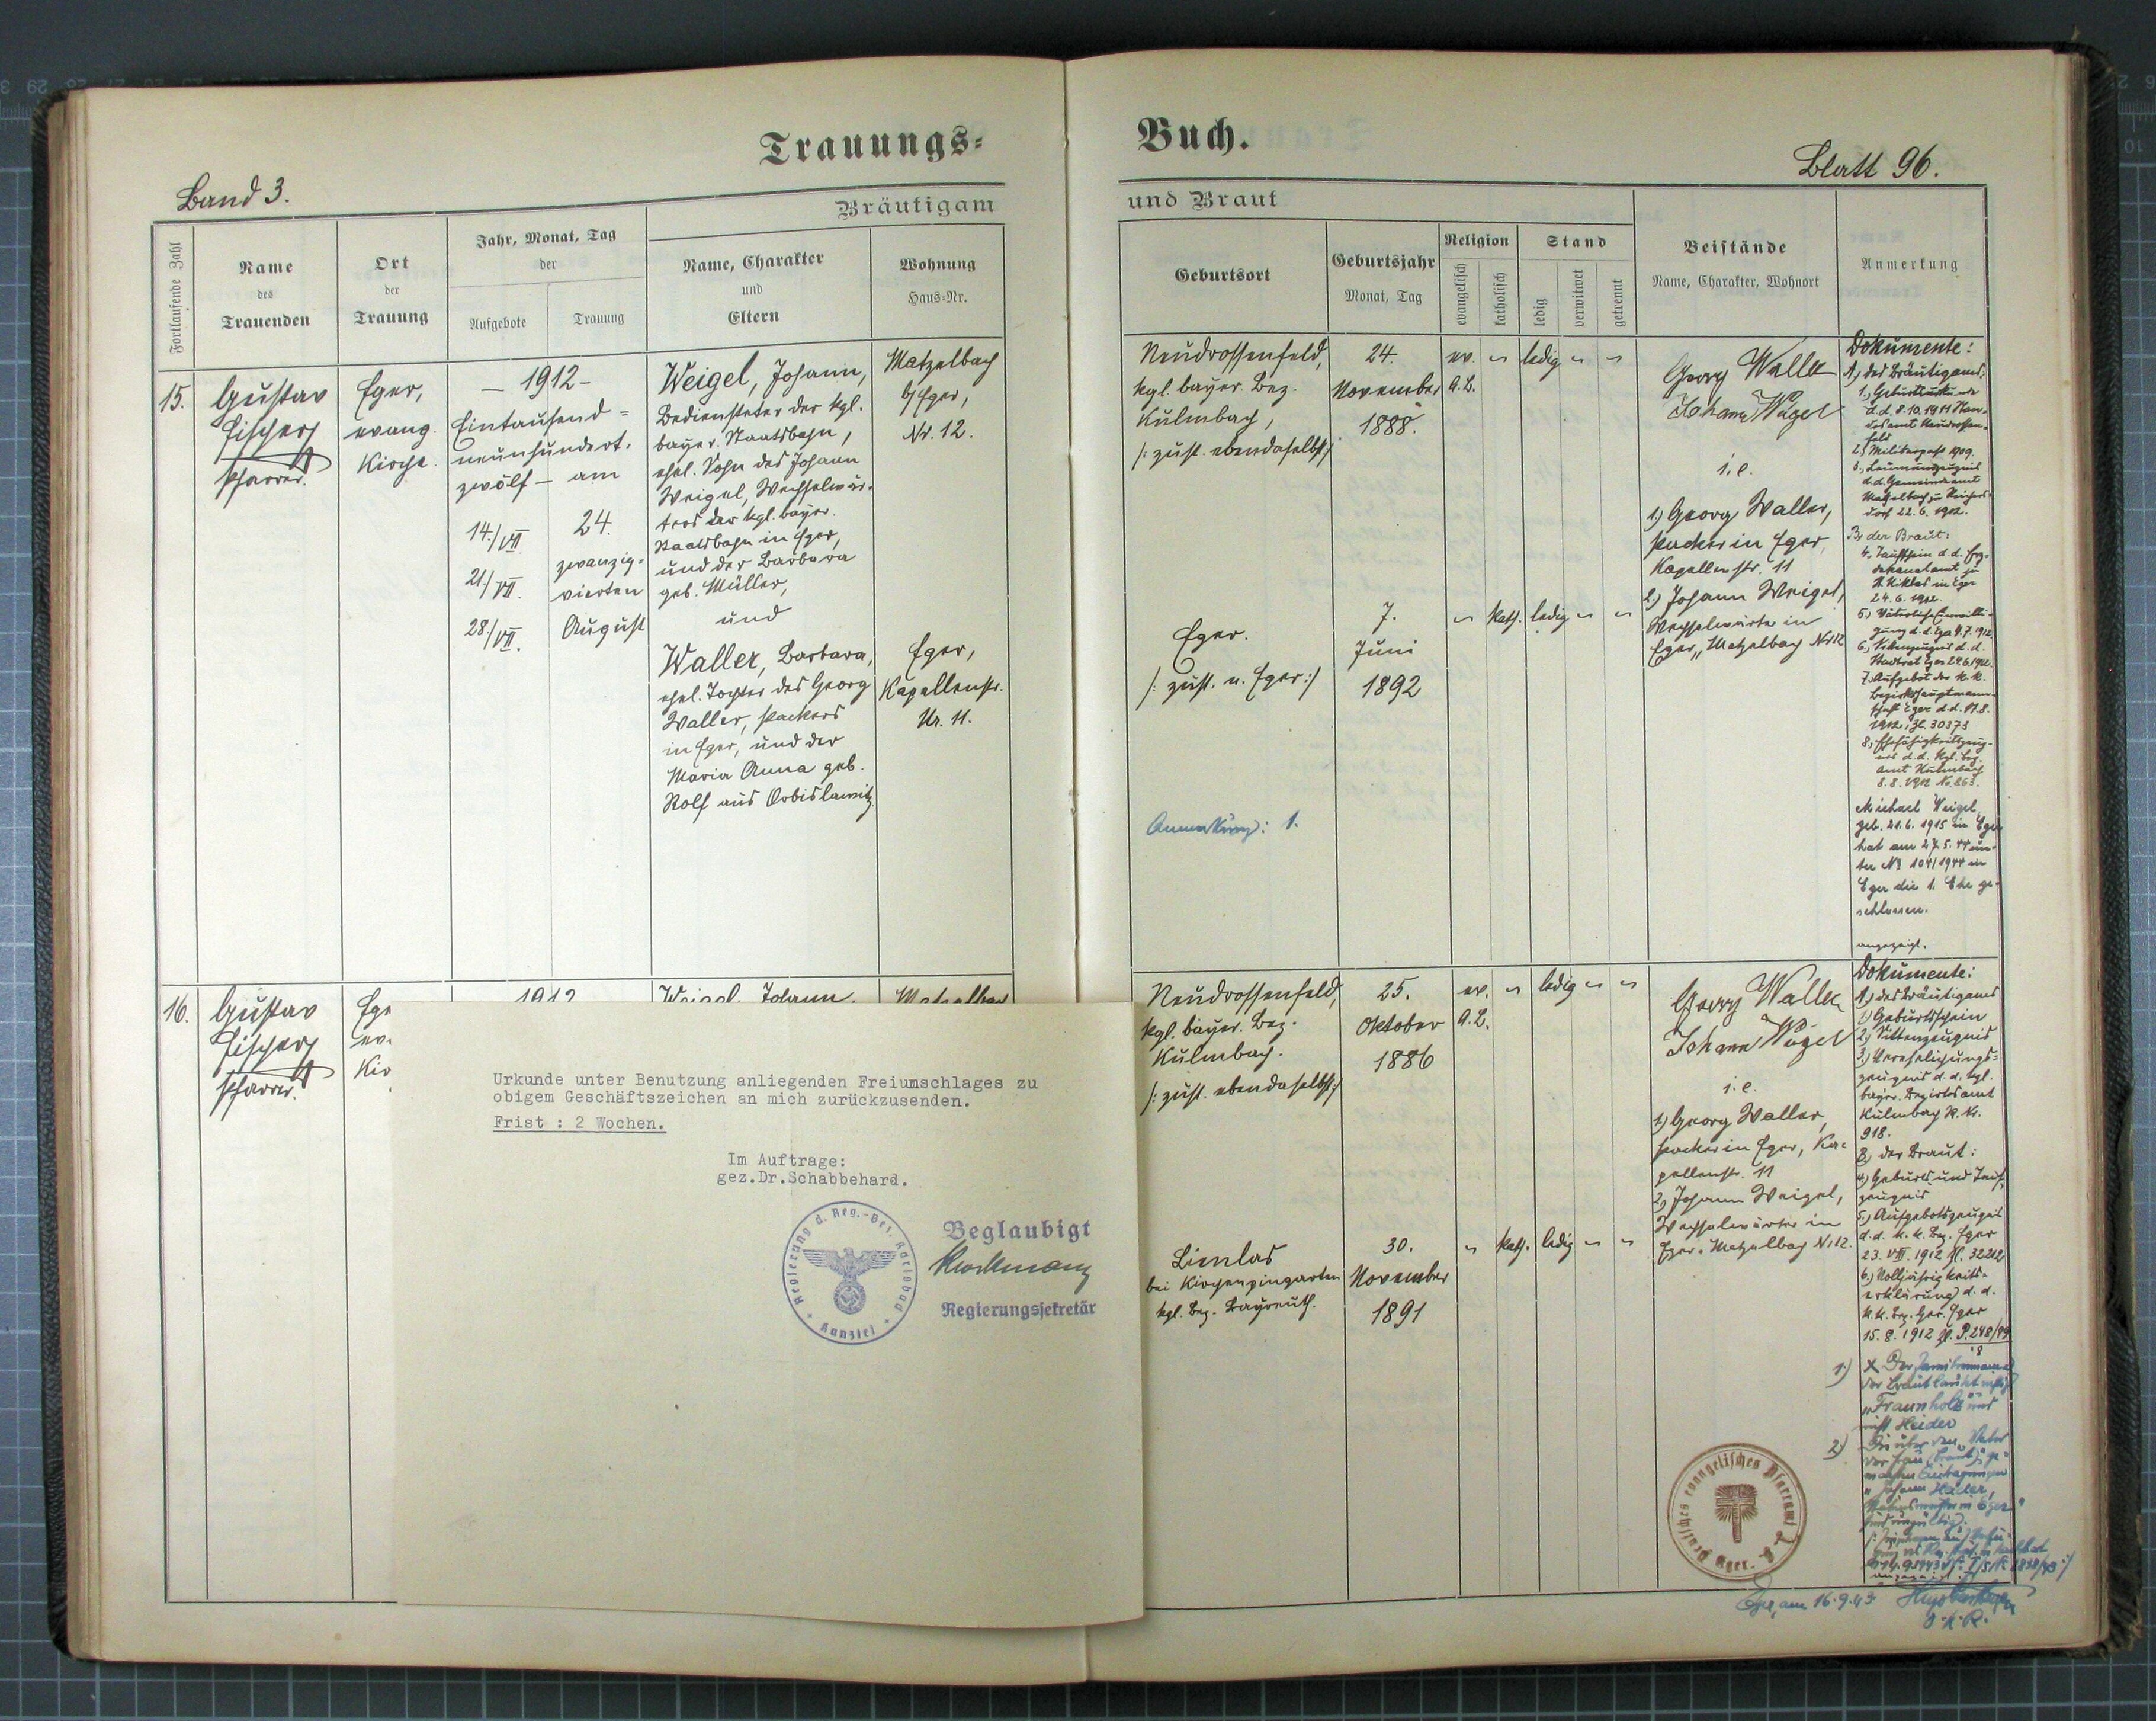 Trauungs=
Buch.
Band 3.
Blatt 96.
Bräutigam
und Braut
Fortlaufende Zahl
Name
des
Trauenden
Ort
der
Trauung
Jahr, Monat, Tag
der
Aufgebote
Trauung
Name, Charakter
und
Eltern
Wohnung
Haus=Nr.
Geburtsort
Geburtsjahr
Monat, Tag
Religion
evangelisch
katholisch
Stand
ledig
verwitwet
getrennt
Beistände
Name, Charakter, Wohnort
Anmerkung
15.
Gustav
Fischer
Pfarrer.
Eger,
evang.
Kirche.
— 1912 —
Eintausend=
neunhundert=
zwölf — am
14./VII
21./VII.
28./VII.
24.
zwanzig=
vierten
August
Weigel, Johann,
Bediensteter der kgl.
bayer. Staatsbahn,
ehel. Sohn des Johann
Weigel, Wechselwär=
ters der kgl. bayer.
Staatsbahn in Eger,
und der Barbara
geb. Müller,
und
Waller, Barbara,
ehel. Tochter des Georg
Waller, Packers
in Eger, und der
Maria Anna geb.
Rolf aus
Matzelbach
b/Eger,
Nr. 12.
Eger,
Kapellenstr.
Nr. 11.
Neudrossenfeld,
kgl. bayer. Bez.
Kulmbach,
/: zust. ebendaselbst :/
24.
November
1888.
ev.
A.B.
ledig
Eger.
/: zust. n. Eger :/
7.
Juni
1892
kath.
ledig
Anmerkung: 1.
Georg Waller
Johann Weigel
i. e.
1.) Georg Waller,
Packer in Eger,
Kapellenstr. 11
2.) Johann Weigel,
Wechselwärter in
Eger, Matzelbach Nr 12
Dokumente:
A.) des Bräutigams:
1.) Geburtsurkunde
d. d. 8.10.1911 Stan=
desamt Neudrossen=
feld
2.) Militärpaß 1909.
3.) Leumundzeugnis
d. d. Gemeindeamt
Matzelbach zu
dorf 22. 6. 1912.
B.) der Braut:
4. Taufschein d. d. Erz=
dekanatamt zu
St. Niklas in Eger
24. 6. 1912.
5.) Väterliche Einwilli=
gung d. d. Eger 9. 7. 1912
6.) Sittenzeugnis d. d.
Stadtrat Eger 24.6.1912.
7. Aufgebot der k. k.
Bezirkshauptmann=
schaft Eger d. d.
1912, Zl. 30373
8.) Ehefähigkeitszeug=
nis d. d. Kgl. Bez.
amt Kulmbach
8. 8. 1912 No. 863.
Michael Weigel,
geb. 21. 6. 1915 in Eger
hat am 27. 5. 44 un=
ter No 104/1944 in
Eger die 1. Ehe ge=
schlossen.
angezeigt.
16.
Gustav
Fischer
Pfarrer.
Ege
ev.
Kir
1912
Weigel, Johann,
Matzelbach
Urkunde unter Benutzung anliegenden Freiumschlages zu
obigem Geschäftszeichen an mich zurückzusenden.
Frist : 2 Wochen.
Im Auftrage:
gez.Dr.Schabbehard.
Regierung d. Reg.-Bez. Karlsbad
Kanzlei
Beglaubigt
Regierungssekretär
Neudrossenfeld,
kgl. bayer. Bez.
Kulmbach.
/: zust. ebendaselbst :/
25.
Oktober
1886
ev.
A.B.
ledig
Lienlas
bei Kirchenpingarten
kgl. Bez. Bayreuth.
30.
November
1891
kath.
ledig
Georg Waller
Johann Weigel
i. e.
1.) Georg Waller,
Packer in Eger, Ka=
pellenstr. 11
2.) Johann Weigel,
Wechselwärter in
Eger, Matzelbach Nr 12.
Dokumente:
A.) des Bräutigams
1.) Geburtsschein
2.) Sittenzeugnis
3.) Verehelichungs=
zeugnis d. d. kgl.
bayer. Bezirksamt
Kulmbach
918.
B.) der Braut:
4.) Geburts und Tauf=
zeugnis
5.) Aufgebotszeugnis
d. d. k. k. Bez. Eger
23. VIII. 1912 Zl. 32212
6.) Volljährigkeits=
erklärung d. d.
k. k. Bez. Ger. Eger
15. 8. 1912 Zl. P. 248/99
8
1.) X Der Familienname
der Braut lautet richtig
"Fraunholz" und
nicht Heider
2.) Die über den "Vater
der Frau (Braut)" ge=
machten Eintragungen
"Johann Heider,
in Eger"
sind ungültig.
Deutsches evangelisches Pfarramt A. B. Eger
Eger, am 16.9.43
O.K.R.